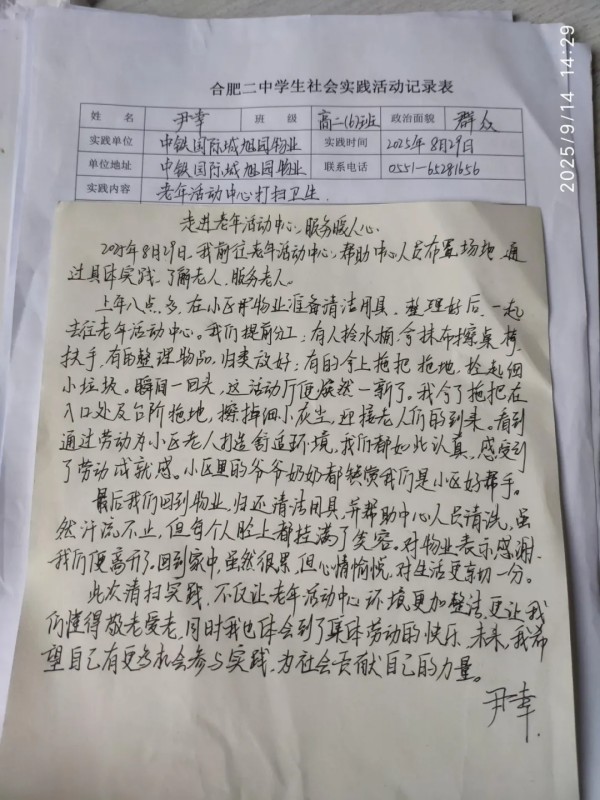 2025/9/14 14:29
合肥二中学生社会实践活动记录表
姓 名 尹幸 班 级 高二(6)班 政治面貌 群众
实践单位 中铁国际城旭园物业 实践时间 2025年8月29日
单位地址 中铁国际城旭园物业 联系电话 0551-65281656
实践内容 老年活动中心打扫卫生.
走进老年活动中心,服务暖人心.
2025年8月29日,我前往老年活动中心,帮助中心人员布置场地,通
过具体实践,了解老人,服务老人。
上午八点多,在小区物业准备清洁用具,整理好后,一起
去往老年活动中心。我们提前分工:有人拎水桶,拿抹布擦桌椅
扶手,有的整理物品,归类放好;有的拿上拖把拖地,捡起细
小垃圾。瞬间一回头,这活动厅便焕然一新了。我拿了拖把在
入口处及台阶拖地,擦掉细小灰尘,迎接老人们的到来。看到
通过劳动为小区老人打造舒适环境,我们都如此认真,感受到
了劳动成就感。小区里的爷爷奶奶都赞赏我们是小区好帮手。
最后我们回到物业,归还清洁用具,并帮助中心人员清洗,虽
然汗流不止,但每个人脸上都挂满了笑容。对物业表示感谢,
我们便离开了。回到家中,虽然很累,但心情愉悦,对生活更亲切一分。
此次清扫实践,不仅让老年活动中心环境更加整洁,更让我
们懂得敬老爱老,同时我也体会到了集体劳动的快乐,未来,我希
望自己有更多机会参与实践,为社会贡献自己的力量。
尹幸.